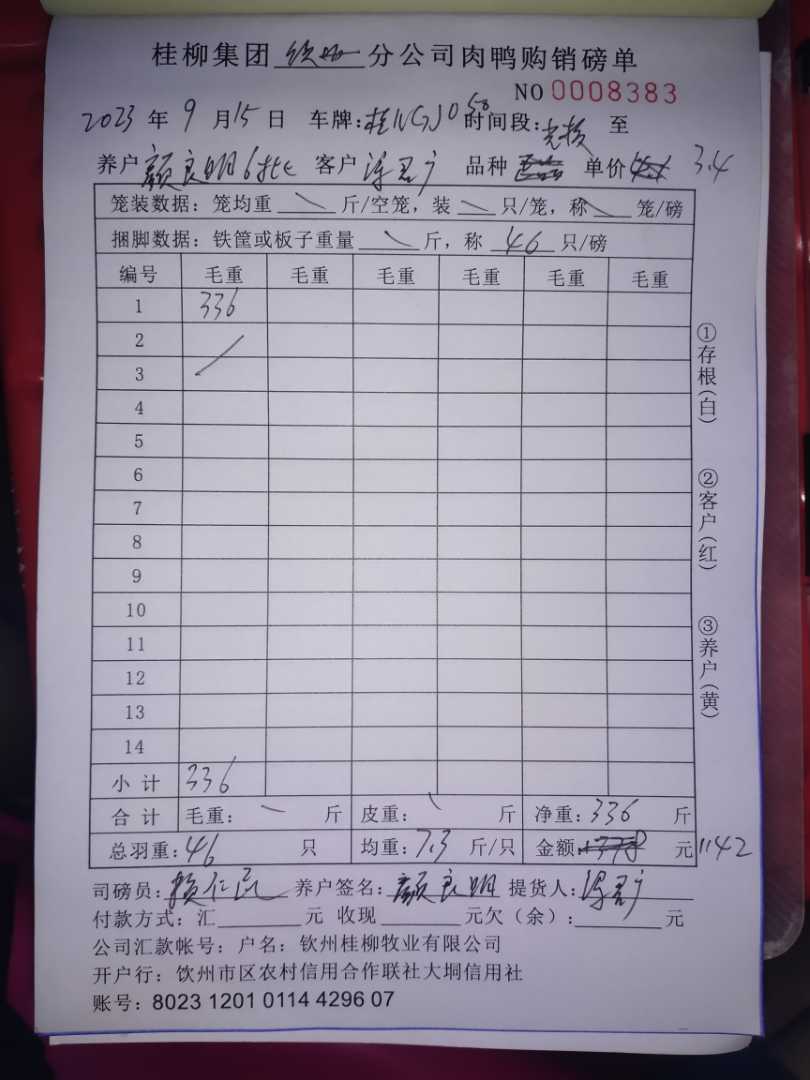 桂柳集团 钦州 分公司肉鸭购销磅单
NO 0008383
2023 年 9 月 15 日 车牌: 时间段: 至
养户 颜良明6批 客户 品种 单价 3.4
笼装数据: 笼均重 斤/空笼, 装 只/笼, 称 笼/磅
捆脚数据: 铁筐或板子重量 斤, 称 46 只/磅
编号 毛重 毛重 毛重 毛重 毛重 毛重
1 336
2
3
4
5
6
7
8
9
10
11
12
13
14
小 计 336
合 计 毛重: 斤 皮重: 斤 净重: 336 斤
总羽重: 46 只 均重: 7.3 斤/只 金额: 元 1142
司磅员: 养户签名: 颜良明 提货人:
付款方式: 汇 元 收现 元欠(余): 元
公司汇款帐号: 户名: 钦州桂柳牧业有限公司
开户行: 饮州市区农村信用合作联社大垌信用社
账号: 8023 1201 0114 4296 07
①存根(白)
②客户(红)
③养户(黄)